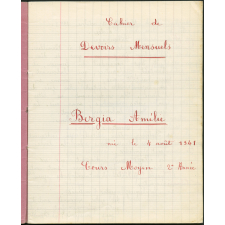 Cahier de
Devoirs Mensuels
Bergia Amélie
née le 4 août 1341
Cours Moyen 2e Année